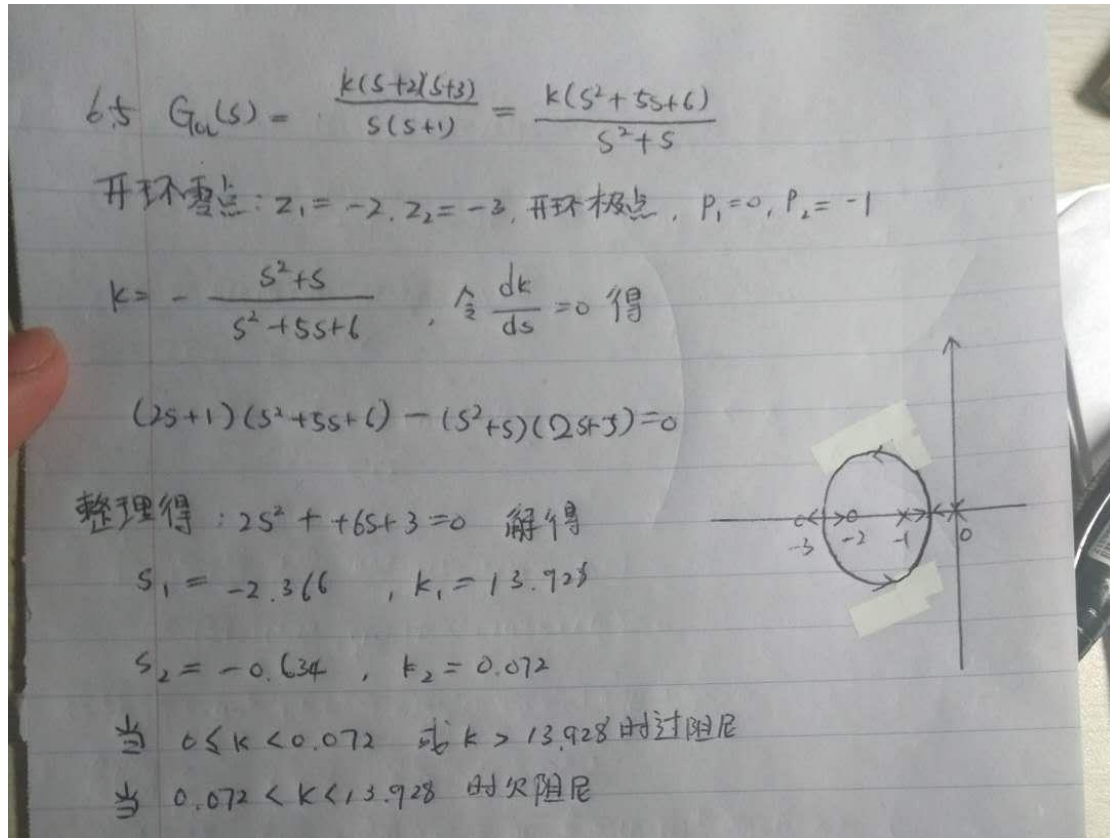 6.5 G_{GL}(s) = \frac{k(s+2)(s+3)}{s(s+1)} = \frac{k(s²+5s+6)}{s²+s}
开环零点: z₁ = -2, z₂ = -3, 开环极点, P₁=0, P₂= -1
k = - \frac{s²+s}{s²+5s+6} , 令 \frac{dk}{ds} =0 得
(2s+1)(s²+5s+6) - (s²+s)(2s+5)=0
整理得: 2s² + +6s+3=0 解得
s₁ = -2.366 , k₁ = 13.928
s₂ = -0.634 , k₂ = 0.072
当 0≤k<0.072 或 k>13.928时过阻尼
当 0.072<k<13.928 时欠阻尼
-3 -2 -1 0